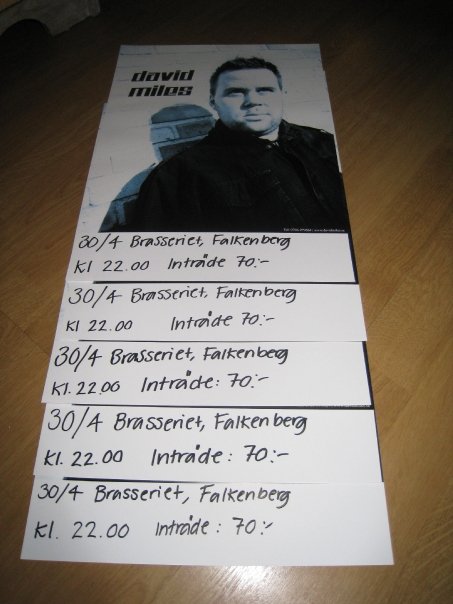 david
miles
30/4 Brasseriet, Falkenberg
Kl 22.00 Inträde 70:-
30/4 Brasseriet, Falkenberg
Kl 22.00 Inträde 70:-
30/4 Brasseriet, Falkenberg
Kl. 22.00 Inträde: 70:-
30/4 Brasseriet, Falkenberg
Kl. 22.00 Inträde: 70:-
30/4 Brasseriet, Falkenberg
Kl. 22.00 Inträde: 70:-